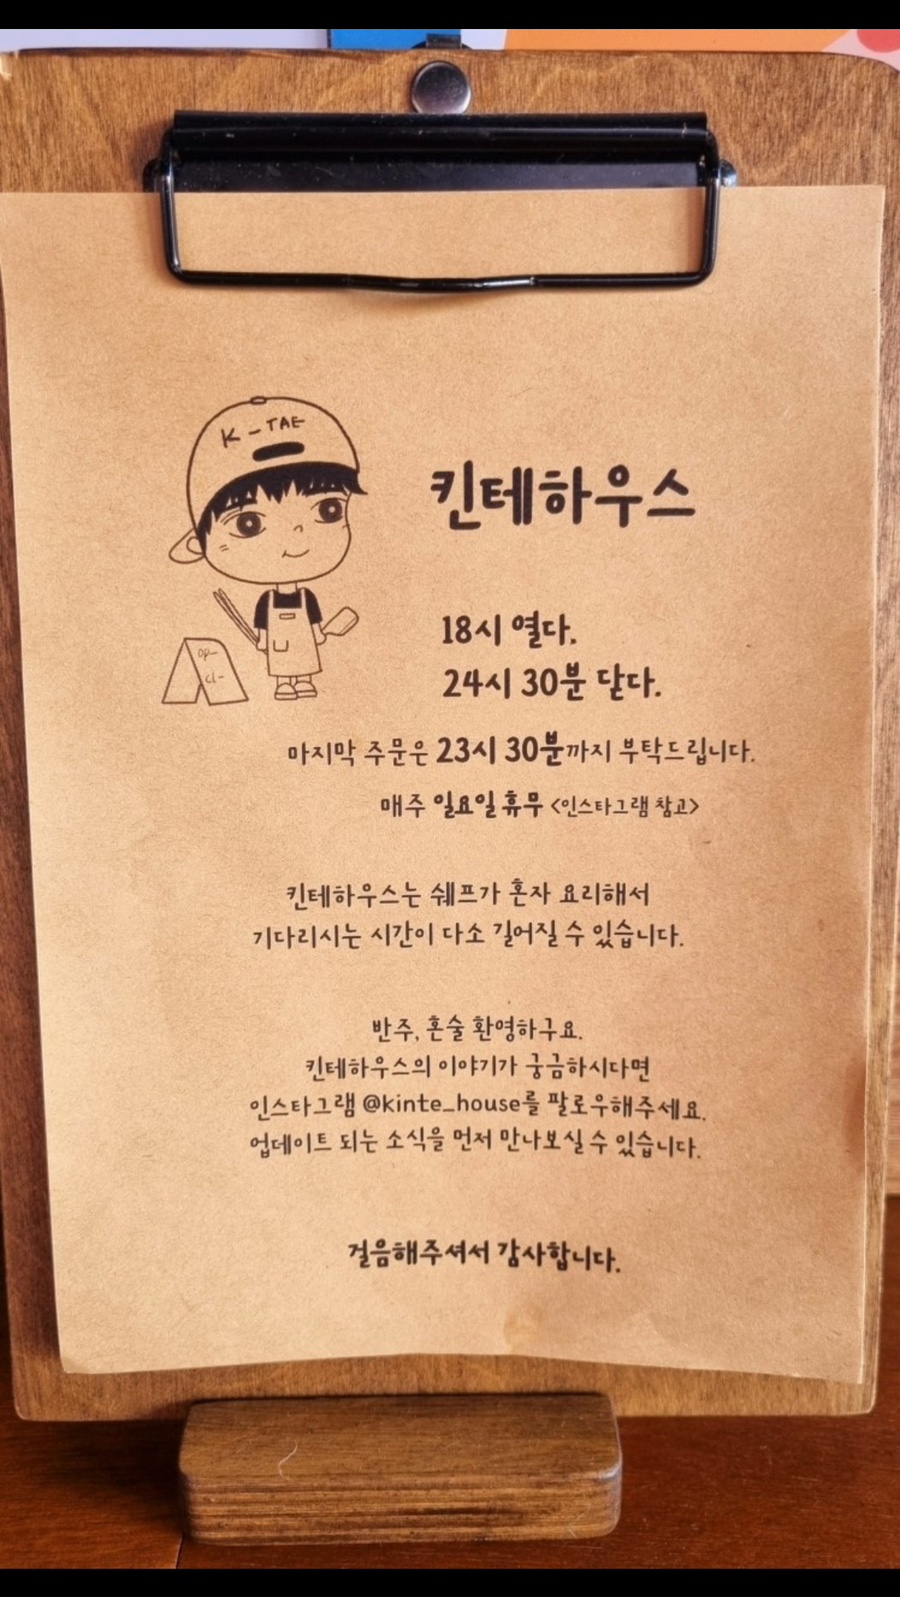 K-TAE
킨테하우스
18시 열다.
24시 30분 닫다.
op-
cl-
마지막 주문은 23시 30분까지 부탁드립니다.
매주 일요일 휴무 <인스타그램 참고>
킨테하우스는 쉐프가 혼자 요리해서
기다리시는 시간이 다소 길어질 수 있습니다.
반주, 혼술 환영하구요.
킨테하우스의 이야기가 궁금하시다면
인스타그램 @kinte_house를 팔로우해주세요.
업데이트 되는 소식을 먼저 만나보실 수 있습니다.
걸음해주셔서 감사합니다.